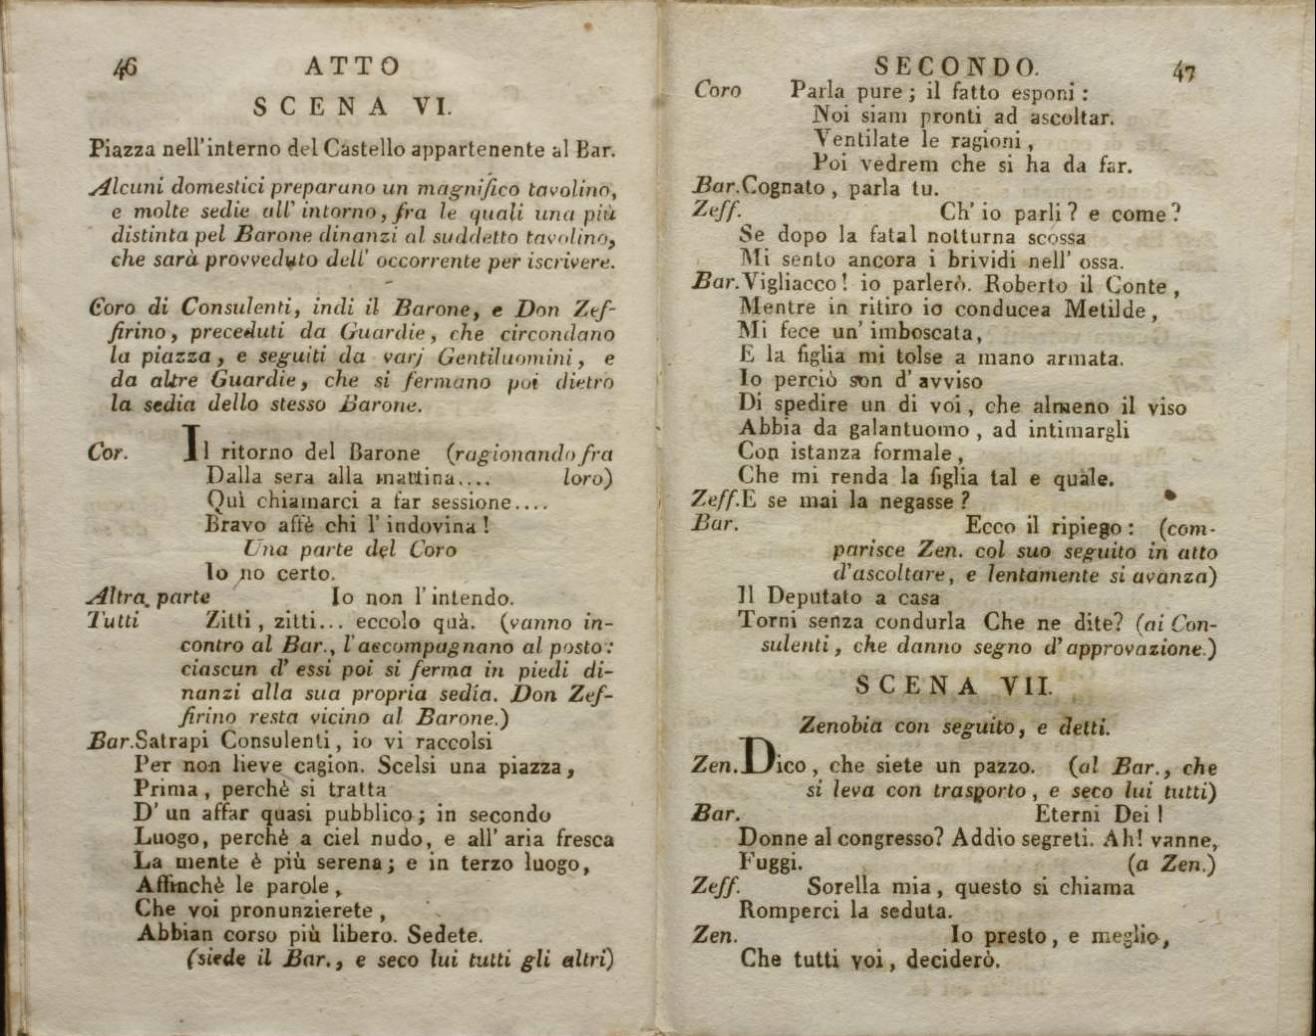 46
ATTO
SCENA VI.
Piazza nell'interno del Castello appartenente al Bar.
Alcuni domestici preparano un magnifico tavolino,
e molte sedie all' intorno, fra le quali una più
distinta pel Barone dinanzi al suddetto tavolino,
che sarà provveduto dell' occorrente per iscrivere.
Coro di Consulenti, indi il Barone, e Don Zef-
firino, preceduti da Guardie, che circondano
la piazza, e seguiti da varj Gentiluomini, e
da altre Guardie, che si fermano poi dietro
la sedia dello stesso Barone.
Cor. Il ritorno del Barone (ragionando fra
Dalla sera alla mattina.... loro)
Quì chiamarci a far sessione....
Bravo affè chi l' indovina!
Una parte del Coro
Io no certo.
Altra parte Io non l' intendo.
Tutti Zitti, zitti... eccolo quà. (vanno in-
contro al Bar., l'accompagnano al posto:
ciascun d' essi poi si ferma in piedi di-
nanzi alla sua propria sedia. Don Zef-
firino resta vicino al Barone.)
Bar. Satrapi Consulenti, io vi raccolsi
Per non lieve cagion. Scelsi una piazza,
Prima, perchè si tratta
D' un affar quasi pubblico; in secondo
Luogo, perchè a ciel nudo, e all' aria fresca
La mente è più serena; e in terzo luogo,
Affinchè le parole,
Che voi pronunzierete,
Abbian corso più libero. Sedete.
(siede il Bar., e seco lui tutti gli altri)
SECONDO.
47
Coro Parla pure; il fatto esponi:
Noi siam pronti ad ascoltar.
Ventilate le ragioni,
Poi vedrem che si ha da far.
Bar. Cognato, parla tu.
Zeff. Ch' io parli? e come?
Se dopo la fatal notturna scossa
Mi sento ancora i brividi nell' ossa.
Bar. Vigliacco! io parlerò. Roberto il Conte,
Mentre in ritiro io conducea Metilde,
Mi fece un' imboscata,
E la figlia mi tolse a mano armata.
Io perciò son d' avviso
Di spedire un di voi, che almeno il viso
Abbia da galantuomo, ad intimargli
Con istanza formale,
Che mi renda la figlia tal e quale.
Zeff. E se mai la negasse?
Bar. Ecco il ripiego: (com-
parisce Zen. col suo seguito in atto
d'ascoltare, e lentamente si avanza)
Il Deputato a casa
Torni senza condurla Che ne dite? (ai Con-
sulenti, che danno segno d' approvazione.)
SCENA VII.
Zenobia con seguito, e detti.
Zen. Dico, che siete un pazzo. (al Bar., che
si leva con trasporto, e seco lui tutti)
Bar. Eterni Dei!
Donne al congresso? Addio segreti. Ah! vanne,
Fuggi. (a Zen.)
Zeff. Sorella mia, questo si chiama
Romperci la seduta.
Zen. Io presto, e meglio,
Che tutti voi, deciderò.